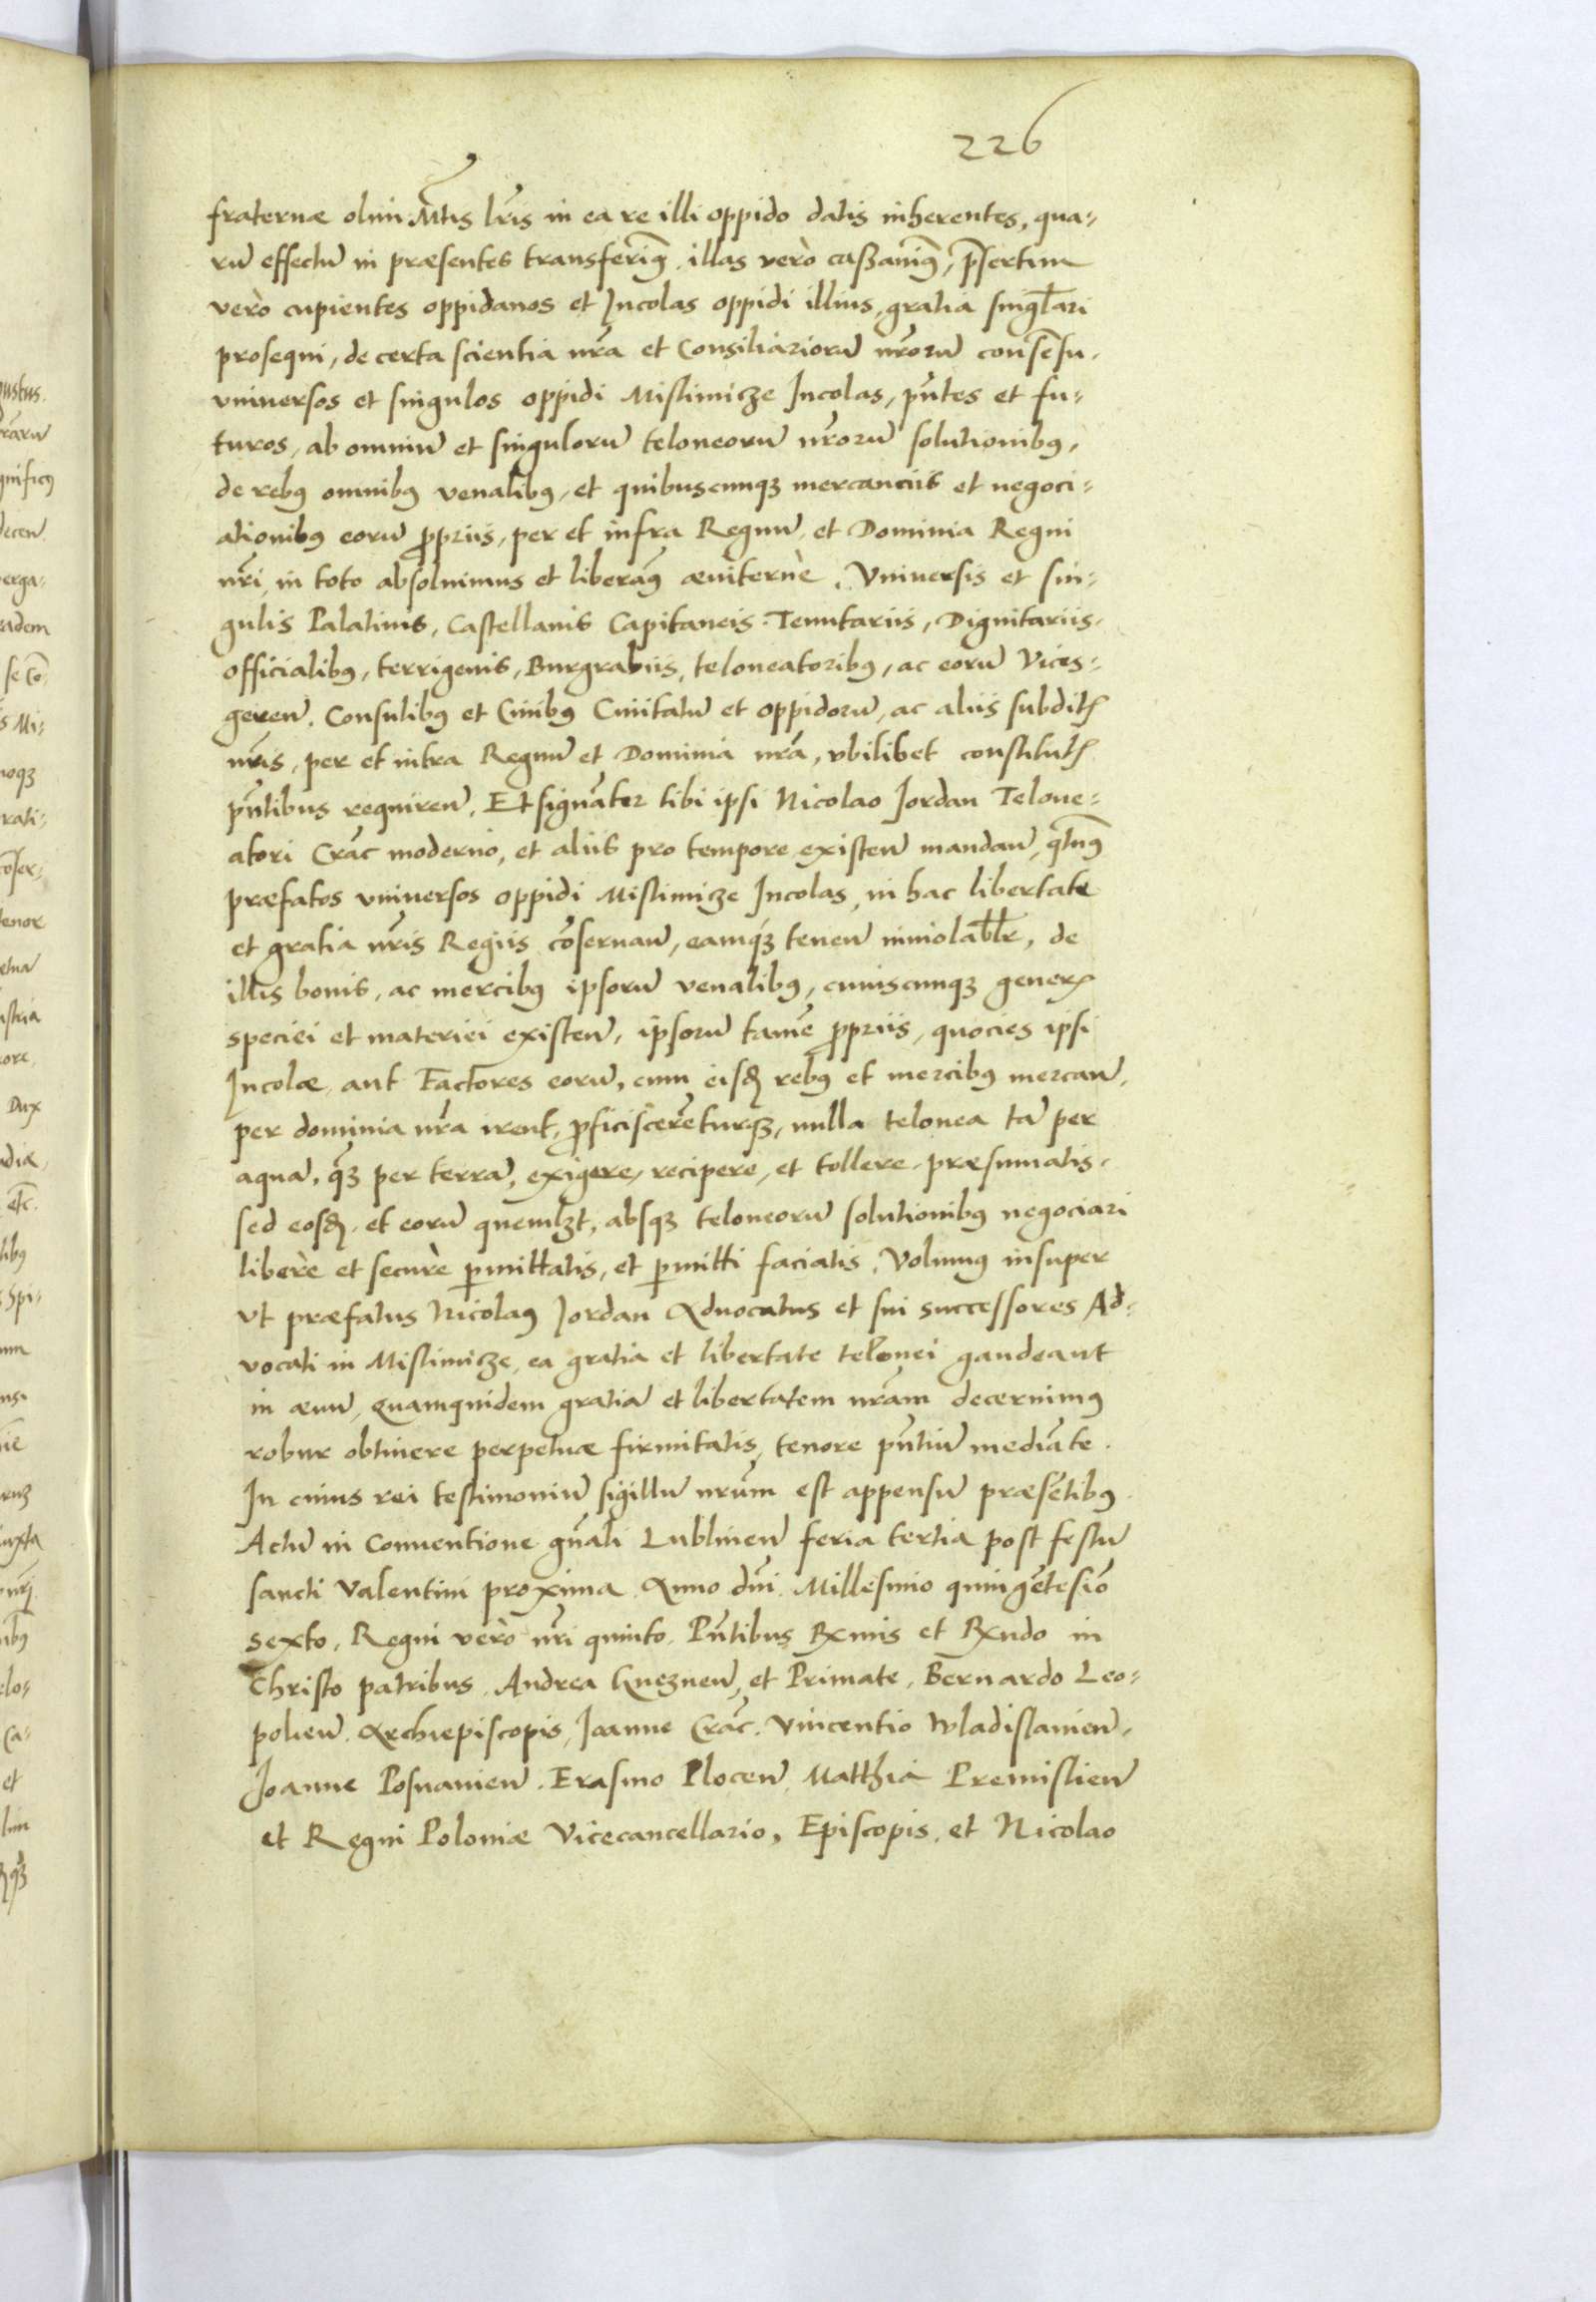 226
fraternæ olim Mtis lr̃is in ea re illi oppido datis inherentes, qua-
rũ effectũ in præsentes transferim9, illas verò caßauim9, p̃sertim
verò cupientes oppidanos et Incolas oppidi illius, gratia singl̃ari
prosequi, de certa scientia nr̃a et Consiliariorũ nr̃orũ consẽsu,
vniuersos et singulos oppidi Mislimicze Incolas, pñtes et fu-
turos, ab omniũ et singulorũ teloneorũ nr̃orũ solutionib9,
de reb9 omnib9 venalib9, et quibuscunq3 mercanciis et negoci-
ationib9 eorũ p̃priis, per et infra Regnũ et Dominia Regni
nr̃i, in toto absoluimus et liberam9 æuiternè. Vniuersis et sin-
gulis Palatinis, Castellanis Capitaneis. Tenutariis, Dignitariis,
officialib9, terrigenis, Burgrabiis, teloneatorib9, ac eorũ Vices-
geren̄. Consulib9 et Ciuib9 Ciuitatũ et oppidorũ, ac aliis subditꝭ
nr̃is, per et intra Regnũ et Dominia nr̃a, vbilibet constitutꝭ
pñtibus requiren̄. Et signãter tibi ipsi Nicolao Jordan Telone-
atori Crac̃ moderno, et aliis pro tempore existen̄ mandan̄, q̃ten9
præfatos vniuersos oppidi Mislimicze Incolas, in hac libertate
et gratia nr̃is Regiis cõseruan̄, eamq́3 tenen̄ inuiolabl̃r, de
illis bonis, ac mercib9 ipsorũ venalib9, cuiuscunq3 generꝭ
speciei et materiei existen̄, ipsorũ tamẽ p̃priis, quocies ipsi
Incolæ aut Factores eorũ, cum eisd̃ reb9 et mercib9 mercan̄,
per dominia nr̃a irent, p̃ficiscerẽturq3, nulla telonea tã per
aquã, q̃3 per terrã, exigere, recipere, et tollere præsumatis,
sed eosd̃ et eorũ queml3t, absq3 teloneorũ solutionib9 negociari
liberè et securè p̱mittatis, et p̱mitti faciatis. Volum9 insuper
vt præfatus Nicola9 Jordan Aduocatus et sui successores Ad-
vocati in Mislimicze, ea gratia et libertate telonei gaudeant
in æuũ, Quamquidem gratiã et libertatem nr̃am decernim9
robur obtinere perpetuæ firmitatis, tenore pñtiũ mediãte.
In cuius rei testimoniũ sigillũ nr̃um est appensũ præsẽtib9.
Actũ in Conuentione gñali Lublinen̄ feria tertia post festũ
sancti Valentini proxima. Anno dñi. Millesimo quingẽtesiõ
sexto, Regni verò nr̃i quinto. Pñtibus Rx̃mis et Rx̃ndo in
Christo patribus. Andrea Gneznen̄, et Primate, Bernardo Leo-
polien̄. Archiepiscopis, Joanne Crac̃. Vincentio Wladislauien̄,
Joanne Posnanien̄. Erasmo Plocen̄. Matthia Premislien̄
et Regni Poloniæ Vicecancellario, Episcopis. et Nicolao